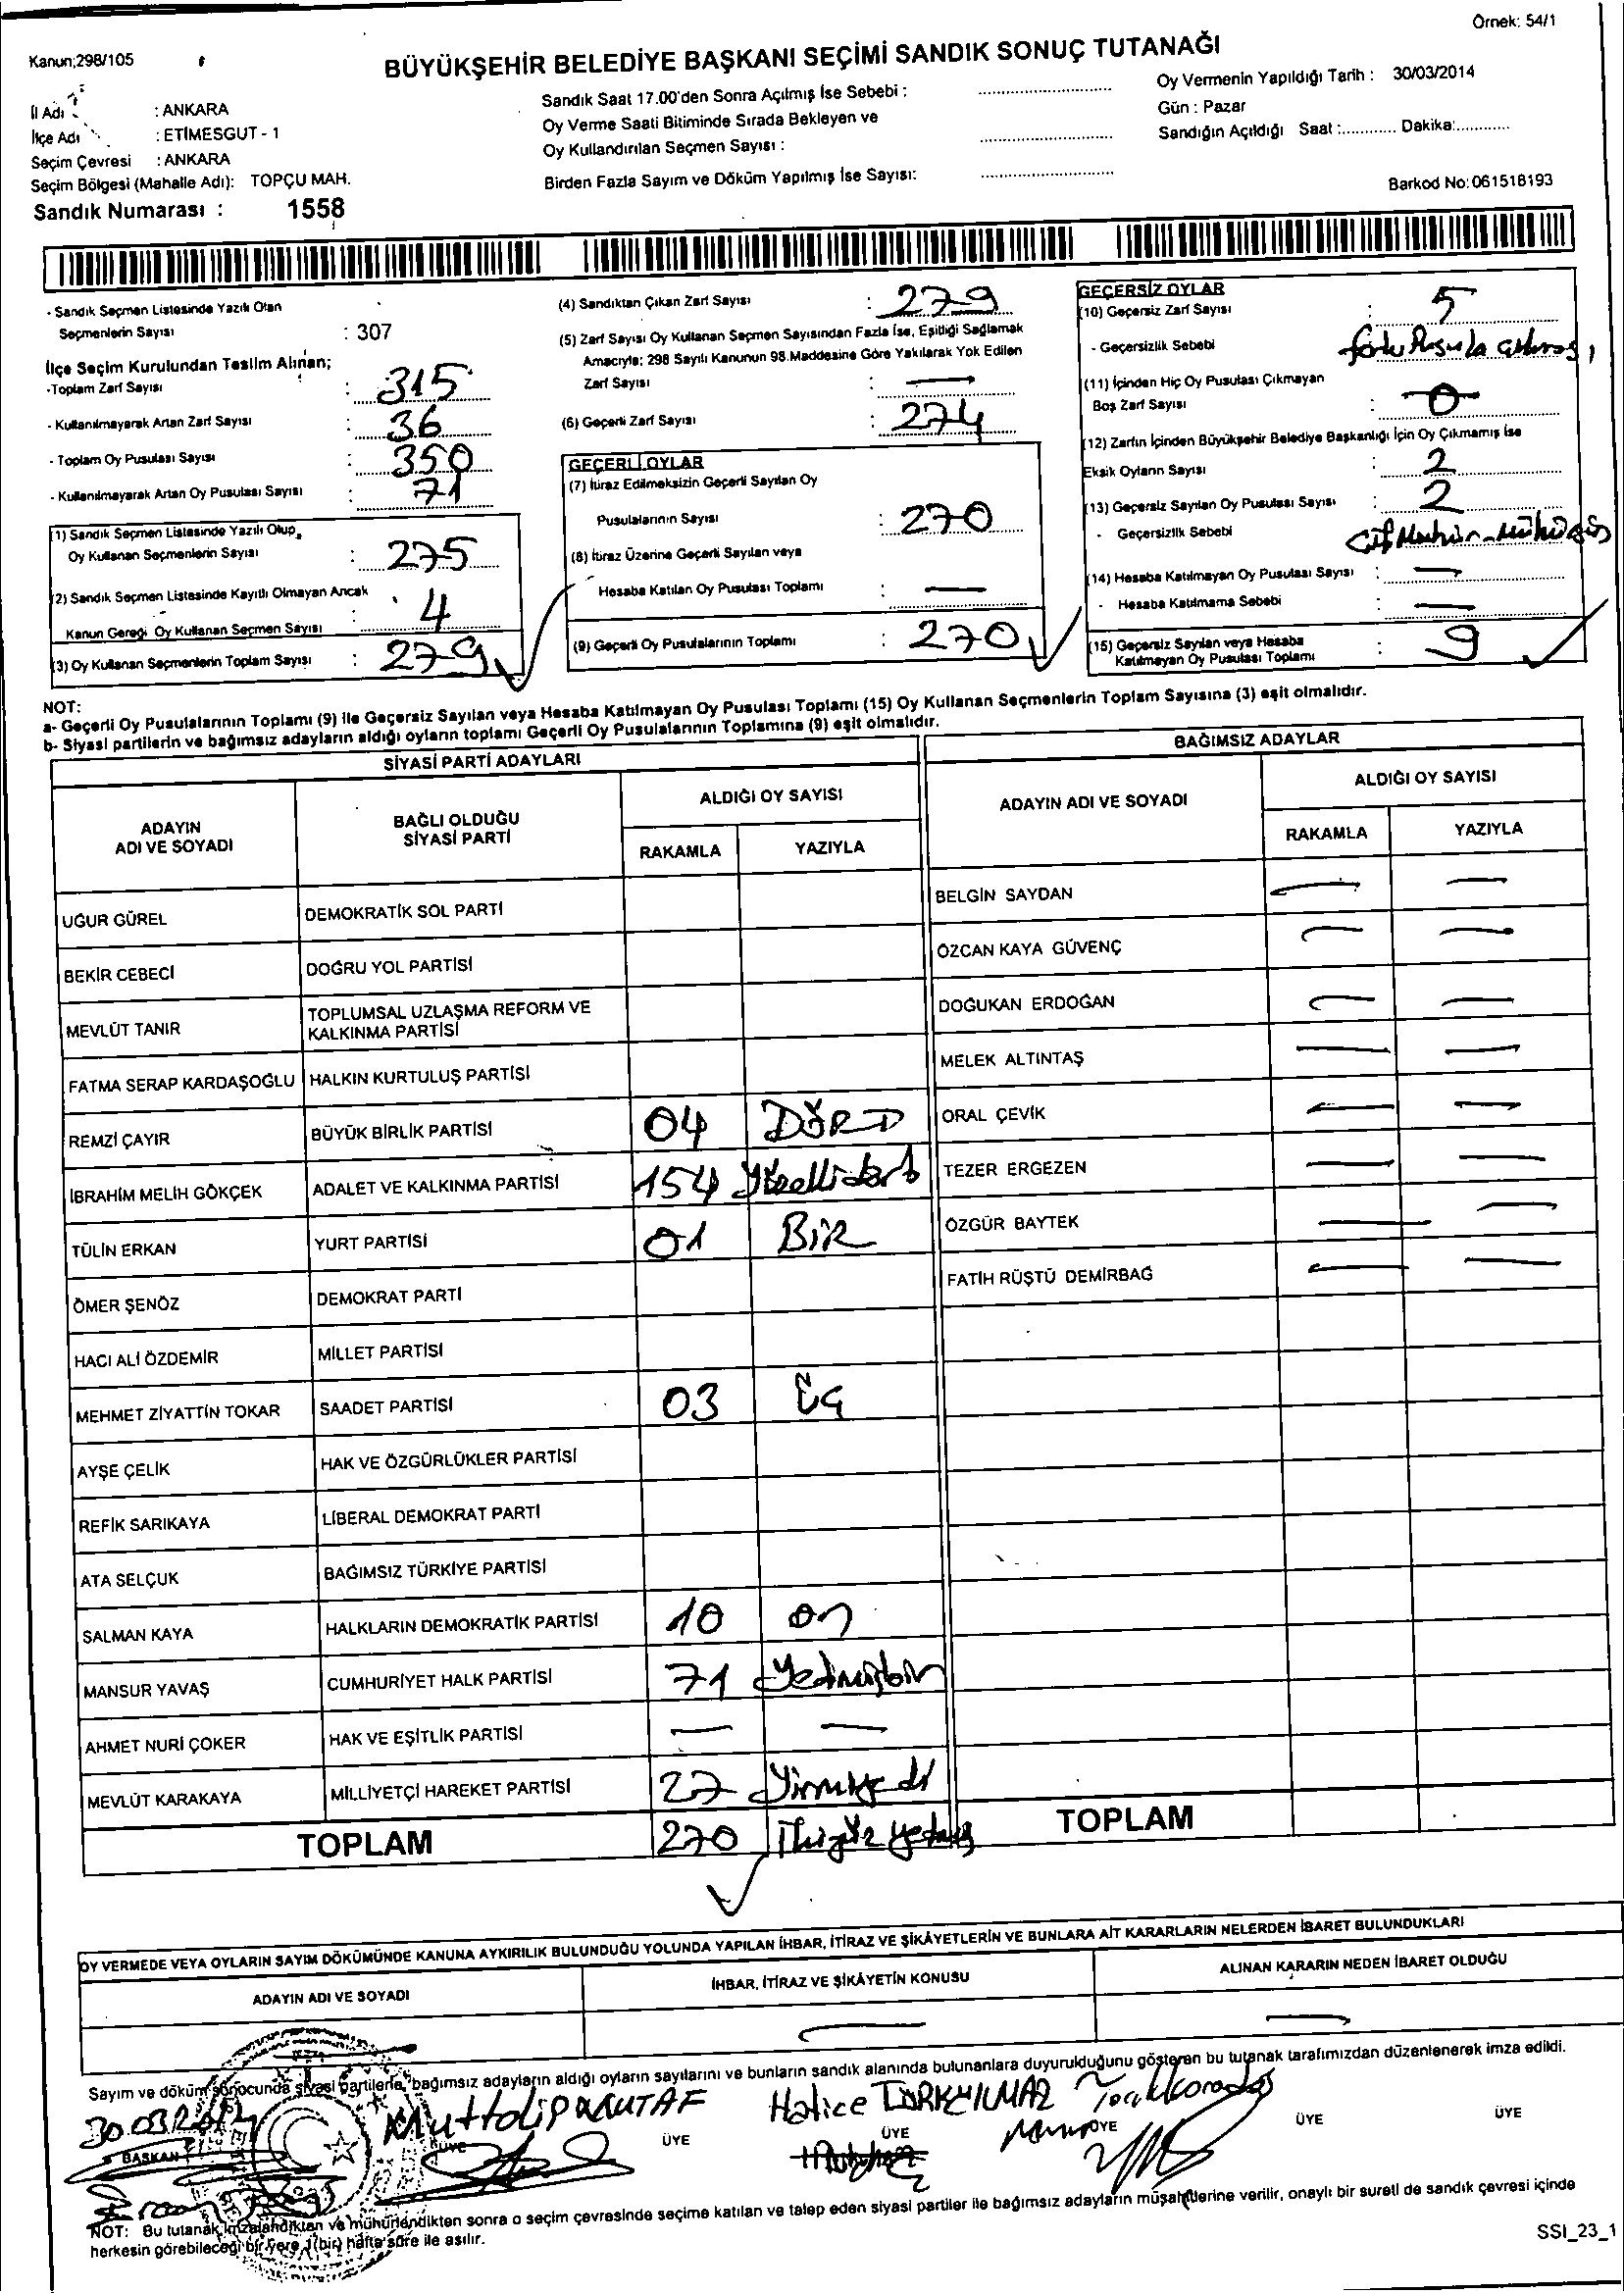 Örnek: 54/1
Kanun;298/105
BÜYÜKŞEHİR BELEDİYE BAŞKANI SEÇİMİ SANDIK SONUÇ TUTANAĞI
İl Adı : ANKARA
İlçe Adı : ETİMESGUT - 1
Seçim Çevresi : ANKARA
Seçim Bölgesi (Mahalle Adı): TOPÇU MAH.
Sandık Numarası : 1558
Sandık Saat 17.00'den Sonra Açılmış İse Sebebi :
Oy Verme Saati Bitiminde Sırada Bekleyen ve
Oy Kullandırılan Seçmen Sayısı :
Birden Fazla Sayım ve Döküm Yapılmış İse Sayısı:
Oy Vermenin Yapıldığı Tarih : 30/03/2014
Gün : Pazar
Sandığın Açıldığı Saat :............ Dakika:...........
Barkod No:061518193
- Sandık Seçmen Listesinde Yazılı Olan
Seçmenlerin Sayısı : 307
İlçe Seçim Kurulundan Teslim Alınan;
-Toplam Zarf Sayısı : 315
- Kullanılmayarak Artan Zarf Sayısı : 36
- Toplam Oy Pusulası Sayısı : 350
- Kullanılmayarak Artan Oy Pusulası Sayısı : 71
(1) Sandık Seçmen Listesinde Yazılı Olup,
Oy Kullanan Seçmenlerin Sayısı : 275
(2) Sandık Seçmen Listesinde Kayıtlı Olmayan Ancak
Kanun Gereği Oy Kullanan Seçmen Sayısı : 4
(3) Oy Kullanan Seçmenlerin Toplam Sayısı : 279
(4) Sandıktan Çıkan Zarf Sayısı : 279
(5) Zarf Sayısı Oy Kullanan Seçmen Sayısından Fazla İse, Eşitliği Sağlamak
Amacıyla; 298 Sayılı Kanunun 98.Maddesine Göre Yakılarak Yok Edilen
Zarf Sayısı : —
(6) Geçerli Zarf Sayısı : 274
GEÇERLİ OYLAR
(7) İtiraz Edilmeksizin Geçerli Sayılan Oy
Pusulalarının Sayısı : 270
(8) İtiraz Üzerine Geçerli Sayılan veya
Hesaba Katılan Oy Pusulası Toplamı : —
(9) Geçerli Oy Pusulalarının Toplamı : 270
GEÇERSİZ OYLAR
(10) Geçersiz Zarf Sayısı : 5
- Geçersizlik Sebebi
(11) İçinden Hiç Oy Pusulası Çıkmayan
Boş Zarf Sayısı : 0
(12) Zarfın İçinden Büyükşehir Belediye Başkanlığı İçin Oy Çıkmamış İse
Eksik Oyların Sayısı : 2
(13) Geçersiz Sayılan Oy Pusulası Sayısı : 2
- Geçersizlik Sebebi
(14) Hesaba Katılmayan Oy Pusulası Sayısı : —
- Hesaba Katılmama Sebebi : —
(15) Geçersiz Sayılan veya Hesaba
Katılmayan Oy Pusulası Toplamı : 9
NOT:
a- Geçerli Oy Pusulalarının Toplamı (9) ile Geçersiz Sayılan veya Hesaba Katılmayan Oy Pusulası Toplamı (15) Oy Kullanan Seçmenlerin Toplam Sayısına (3) eşit olmalıdır.
b- Siyasi partilerin ve bağımsız adayların aldığı oyların toplamı Geçerli Oy Pusulalarının Toplamına (9) eşit olmalıdır.
SİYASİ PARTİ ADAYLARI
ADAYIN ADI VE SOYADI
BAĞLI OLDUĞU SİYASİ PARTİ
ALDIĞI OY SAYISI
RAKAMLA YAZIYLA
UĞUR GÜREL DEMOKRATİK SOL PARTİ
BEKİR CEBECİ DOĞRU YOL PARTİSİ
MEVLÜT TANIR TOPLUMSAL UZLAŞMA REFORM VE KALKINMA PARTİSİ
FATMA SERAP KARDAŞOĞLU HALKIN KURTULUŞ PARTİSİ
REMZİ ÇAYIR BÜYÜK BİRLİK PARTİSİ 04 DÖRD
İBRAHİM MELİH GÖKÇEK ADALET VE KALKINMA PARTİSİ 154 Yüzellidört
TÜLİN ERKAN YURT PARTİSİ 01 BİR
ÖMER ŞENÖZ DEMOKRAT PARTİ
HACI ALİ ÖZDEMİR MİLLET PARTİSİ
MEHMET ZİYATTİN TOKAR SAADET PARTİSİ 03 ÜÇ
AYŞE ÇELİK HAK VE ÖZGÜRLÜKLER PARTİSİ
REFİK SARIKAYA LİBERAL DEMOKRAT PARTİ
ATA SELÇUK BAĞIMSIZ TÜRKİYE PARTİSİ
SALMAN KAYA HALKLARIN DEMOKRATİK PARTİSİ 10 on
MANSUR YAVAŞ CUMHURİYET HALK PARTİSİ 71 Yetmişbir
AHMET NURİ ÇOKER HAK VE EŞİTLİK PARTİSİ — —
MEVLÜT KARAKAYA MİLLİYETÇİ HAREKET PARTİSİ 27 Yirmiyedi
TOPLAM 270 İkiyüz yetmiş
BAĞIMSIZ ADAYLAR
ADAYIN ADI VE SOYADI
ALDIĞI OY SAYISI
RAKAMLA YAZIYLA
BELGİN SAYDAN — —
ÖZCAN KAYA GÜVENÇ — —
DOĞUKAN ERDOĞAN — —
MELEK ALTINTAŞ — —
ORAL ÇEVİK — —
TEZER ERGEZEN — —
ÖZGÜR BAYTEK — —
FATİH RÜŞTÜ DEMİRBAĞ — —
TOPLAM
OY VERMEDE VEYA OYLARIN SAYIM DÖKÜMÜNDE KANUNA AYKIRILIK BULUNDUĞU YOLUNDA YAPILAN İHBAR, İTİRAZ VE ŞİKÂYETLERİN VE BUNLARA AİT KARARLARIN NELERDEN İBARET BULUNDUKLARI
ADAYIN ADI VE SOYADI
İHBAR, İTİRAZ VE ŞİKÂYETİN KONUSU
ALINAN KARARIN NEDEN İBARET OLDUĞU
Sayım ve döküm sonucunda siyasi partilerle, bağımsız adayların aldığı oyların sayılarını ve bunların sandık alanında bulunanlara duyurulduğunu gösteren bu tutanak tarafımızdan düzenlenerek imza edildi.
Hatice TÜRKYILMAZ
BAŞKAN ÜYE ÜYE ÜYE ÜYE ÜYE ÜYE
NOT: Bu tutanak, imzalandıktan ve mühürlendikten sonra o seçim çevresinde seçime katılan ve talep eden siyasi partiler ile bağımsız adayların müşahitlerine verilir, onaylı bir sureti de sandık çevresi içinde
herkesin görebileceği bir yere 1(bir) hafta süre ile asılır.
SSI_23_1